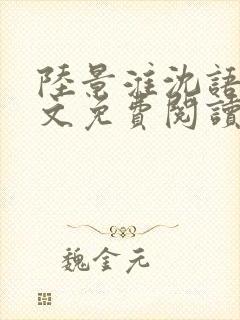 陸景淮沈語
文免費閱讀
魏金元